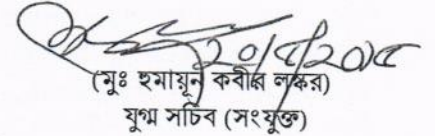 ২০/৫/২০১৫
(মুঃ হুমায়ুন কবীর লস্কর)
যুগ্ম সচিব (সংযুক্ত)